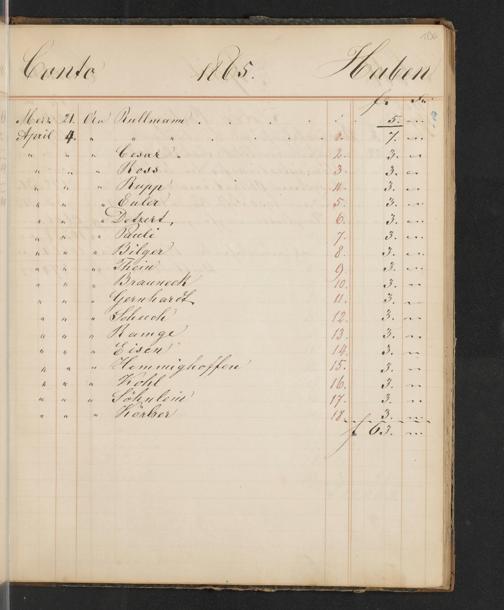 Conto 1865. Haben
186
f x
Merz 21. An Rullmann . . . . . 5. —
April 4. " " " . . . . 1. 7. —
" " " Cesar . 2. 3. —
" " " Ross 3. 3. —
" " " Rupp 4. 3. —
" " " Euler 5. 3. —
" " " Detzert 6. 3. —
" " " Pauli 7. 3. —
" " " Bilger 8. 3. —
" " " Thein 9. 3. —
" " " Brauneck 10. 3. —
" " " Gernhardt 11. 3. —
" " " Schuch 12. 3. —
" " " Ramge 13. 3. —
" " " Eisen 14. 3. —
" " " Hemmighoffen 15. 3. —
" " " Kohl 16. 3. —
" " " Söhnlein 17. 3. —
" " " Körber 18. 3. —
f 63. —